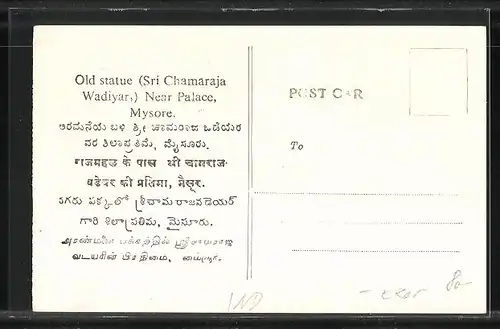 Old statue (Sri Chamaraja
Wadiyar,) Near Palace,
Mysore.
ಅರಮನೆಯ ಬಳಿ ಶ್ರೀ ಚಾಮರಾಜ ಒಡೆಯರ
ವರ ಶಿಲಾಪ್ರತಿಮೆ, ಮೈಸೂರು.
राजमहल के पास श्री चामराज
वडेयर की प्रतिमा, मैसूर.
గారి శిలాప్రతిమ, మైసూరు.
அரண்மனை பக்கத்தில் ஸ்ரீ சாமராஜ
வடயரின் பிரதிமை, மைசூர்.
POST CAR
To
IND
80